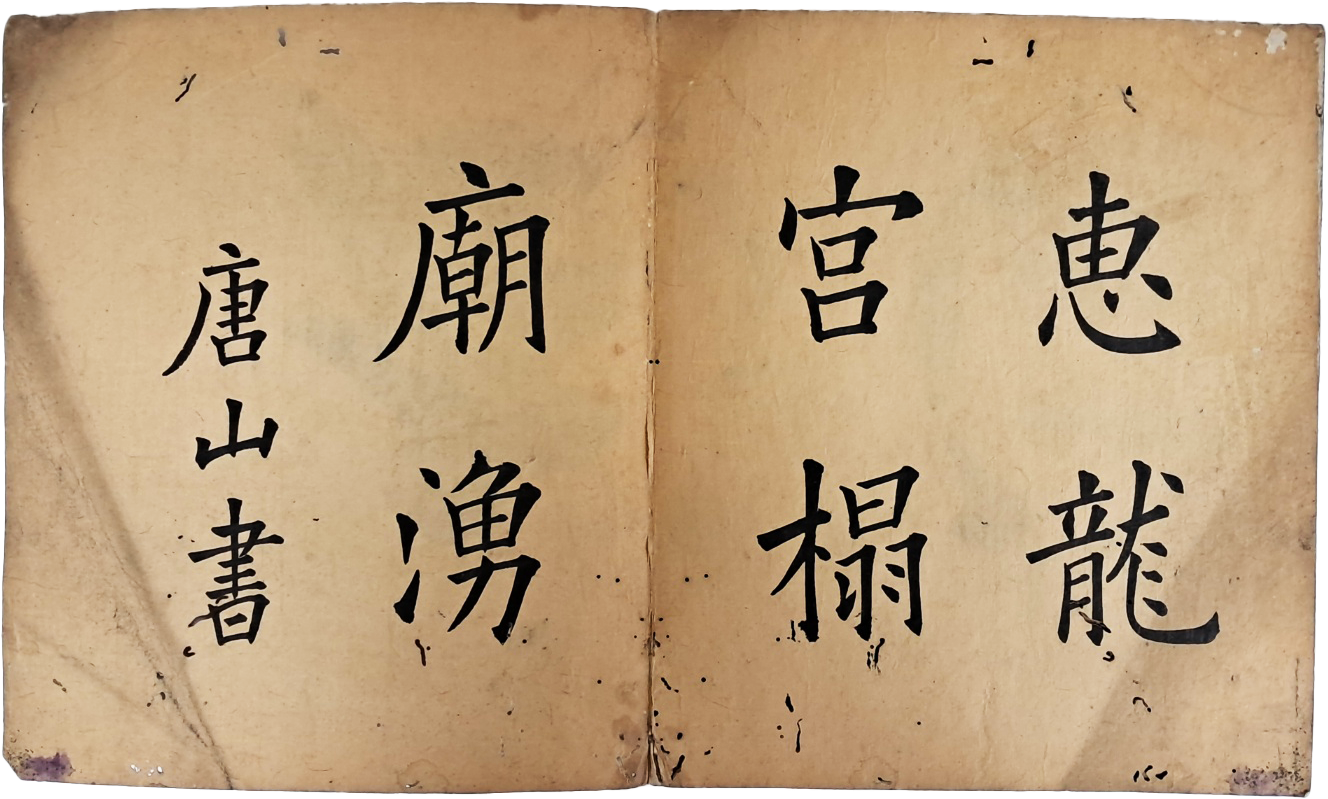 恵龍
宮榻
廟湧
唐山書